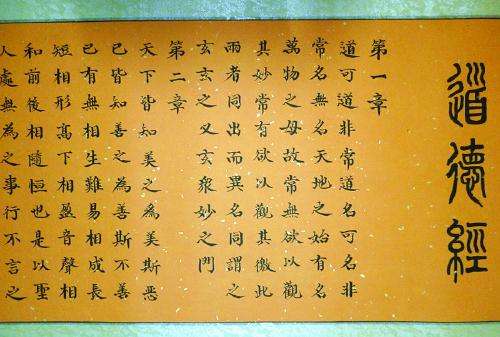 道德經
第一章
道可道非常道名可名非
常名無名天地之始有名
萬物之母故常無欲以觀
其妙常有欲以觀其徼此
兩者同出而異名同謂之
玄玄之又玄衆妙之門
第二章
天下皆知美之為美斯惡
已皆知善之為善斯不善
已有無相生難易相成長
短相形髙下相盈音聲相
和前後相隨恒也是以聖
人處無為之事行不言之